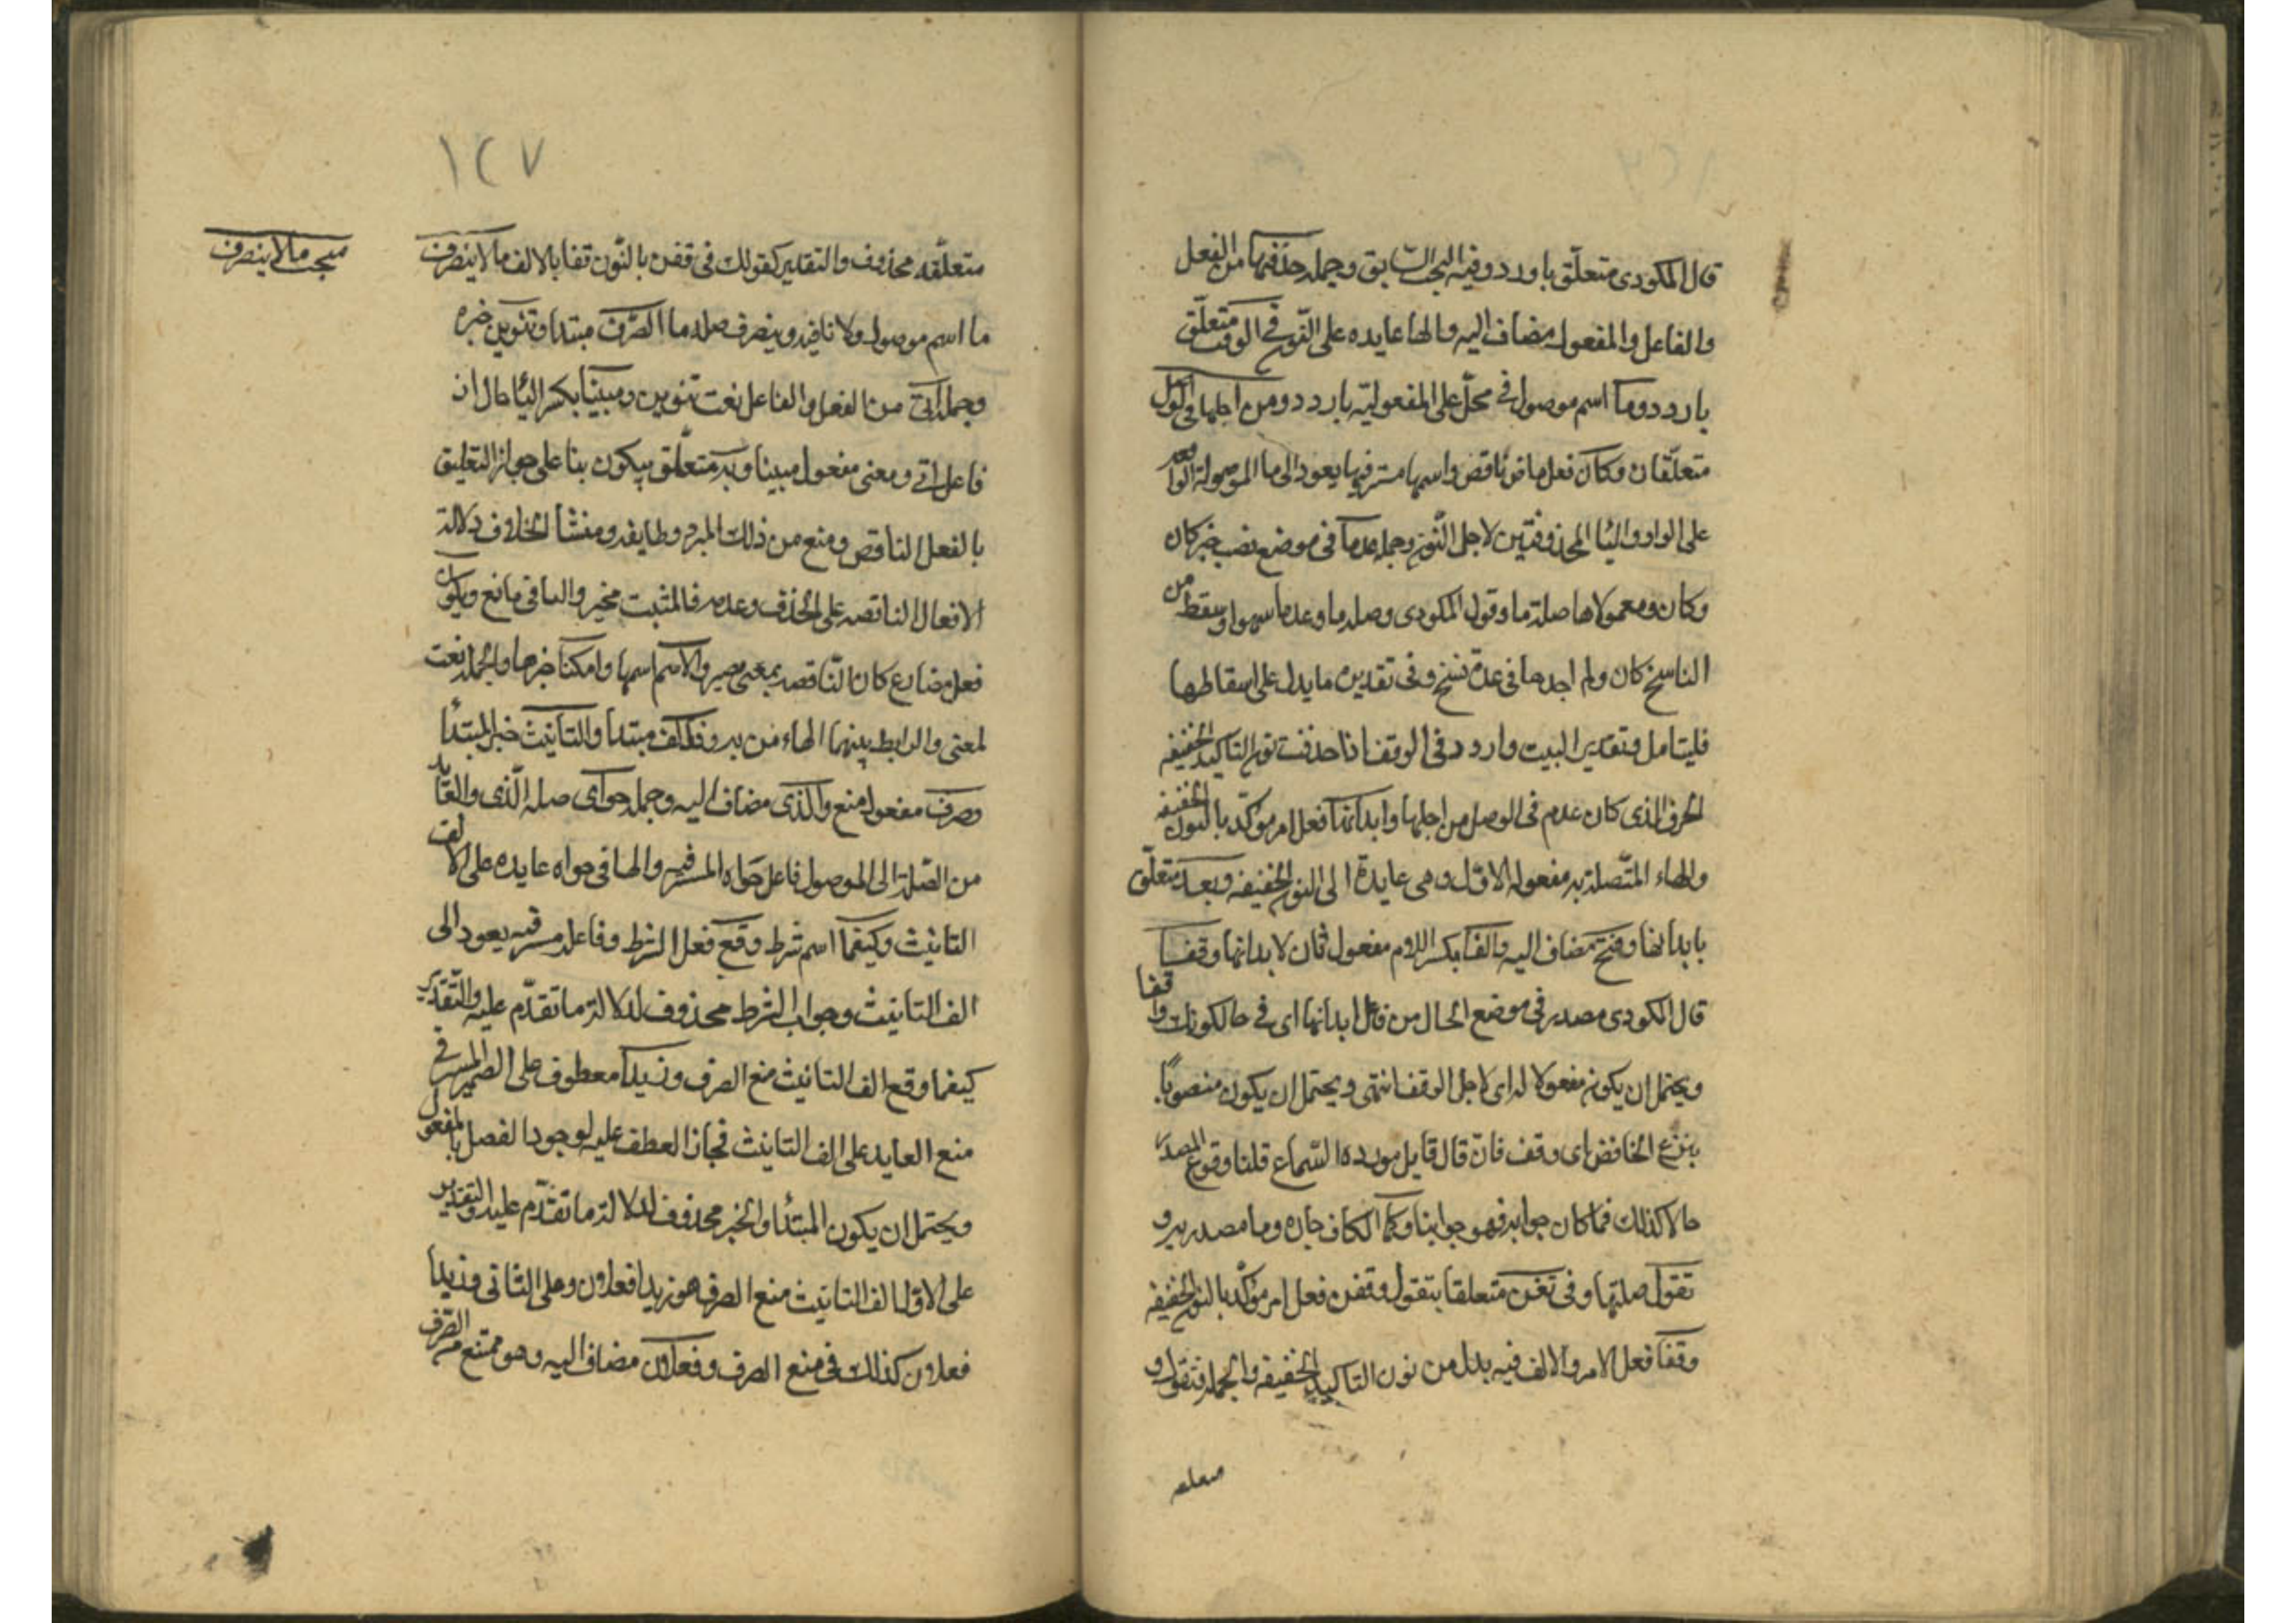 قال المكودى متعلق باردد وفيه البحث السابق وجملة حذفتها من الفعل
والفاعل والمفعول مضاف اليه والها عايده على النون وفى الوقف متعلق
باردد وما اسم موصول فى محل على المفعولية باردد ومن اجلها فى الوصل
متعلقان وكان فعل ماض ناقص واسمها مستتر فيها يعود الى ما الموصولة الواقعة
على الواو واليا المحذوفتين لاجل النون وجملة عدما فى موضع نصب خبر كان
وكان ومعمولاها صلة ما وقول المكودى وصلة ما وعدما سهوا وسقط من
الناسخ كان ولم اجدها فى عدة نسخ وفى تقديره ما يدل على اسقاطها
فليتامل وتقدير البيت واردد فى الوقف اذا حذفت نون التاكيد الخفيفه
الحرف الذى كان عدم فى الوصل من اجلها وابدلنها فعل امر مؤكد بالنون الخفيفه
والهاء المتصلة به مفعوله الاول وهى عايدة الى النون الخفيفه وبعد متعلق
بابدلنها وفتح مضاف اليه والفا بكسر اللام مفعول ثان لابدلنها وقفا
قال المكودى مصدر فى موضع الحال من فاعل ابدلنها اى فى حال كونك واقفا
ويحتمل ان يكون مفعولا له اى لاجل الوقف انتهى ويحتمل ان يكون منصوبا
بنزع الخافض اى وقف فان قال قايل مورده السماع قلنا وقوع المصدر
حالا كذلك فما كان جوابه فهو جوابنا وكما الكاف جاره وما مصدريه و
تقول صلتها وفى تغن متعلقا بتقول وقفن فعل امر مؤكد بالنون الخفيفه
وقفا فعل الامر والالف فيه بدل من نون التاكيد الخفيفه والجملة فتقول و
متعلقه
١٢٧
مبحث ما لا ينصرف
متعلقه محذوف والتقدير كقولك فى قفن بالنون قفا بالالف ما لا ينصرف
ما اسم موصول ولا نافيه وينصرف صلة ما الصرف مبتدا وتنوين خبره
وجملة اتى من الفعل والفاعل نعت تنوين ومبينا بكسر اليا حال من
فاعل اتى ومعنى مفعول مبينا وبه متعلق بيكون بنا على جواز التعليق
بالفعل الناقص ومنع من ذلك المبرد وطايفه ومنشأ الخلاف دلالة
الافعال الناقصه على الحذف وعدمه فالمثبت مخير والباقى مانع ويكون
فعل مضارع كان الناقصه بمعنى يصير والاسم اسمها وامكنا خبرها والجملة نعت
لمعنى والرابط بينهما الهاء من به وفالف مبتدا والتانيث خبر المبتدأ
وصرف مفعول منع والذى مضاف اليه وجملة حواى صلة الذى والعايد
من الصلة الى الموصول فاعل حواه المستتر فيه والها فى حواه عايده على الالف
التانيث وكيفما اسم شرط وقع فعل الشرط وفاعله مستتر فيه يعود الى
الف التانيث وجواب الشرط محذوف لدلالة ما تقدم عليه والتقدير
كيفما وقع الف التانيث منع الصرف وزيدا معطوف على الضمير المستتر فى
منع العايد على الف التانيث فجاز العطف عليه لوجود الفصل بالمفعول
ويحتمل ان يكون المبتدأ والخبر محذوف لدلالة ما تقدم عليه والتقدير
على الاول الف التانيث منع الصرف هو وزيدا فعلان وعلى الثانى وزيدا
فعلان كذلك فى منع الصرف وفعلان مضاف اليه وهو ممتنع من الصرف